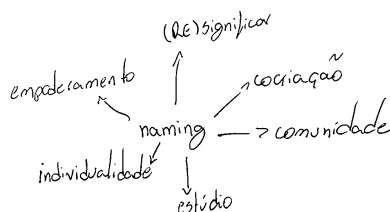 (RE)significar
empoderamento
cociação
naming
comunidade
individualidade
estúdio